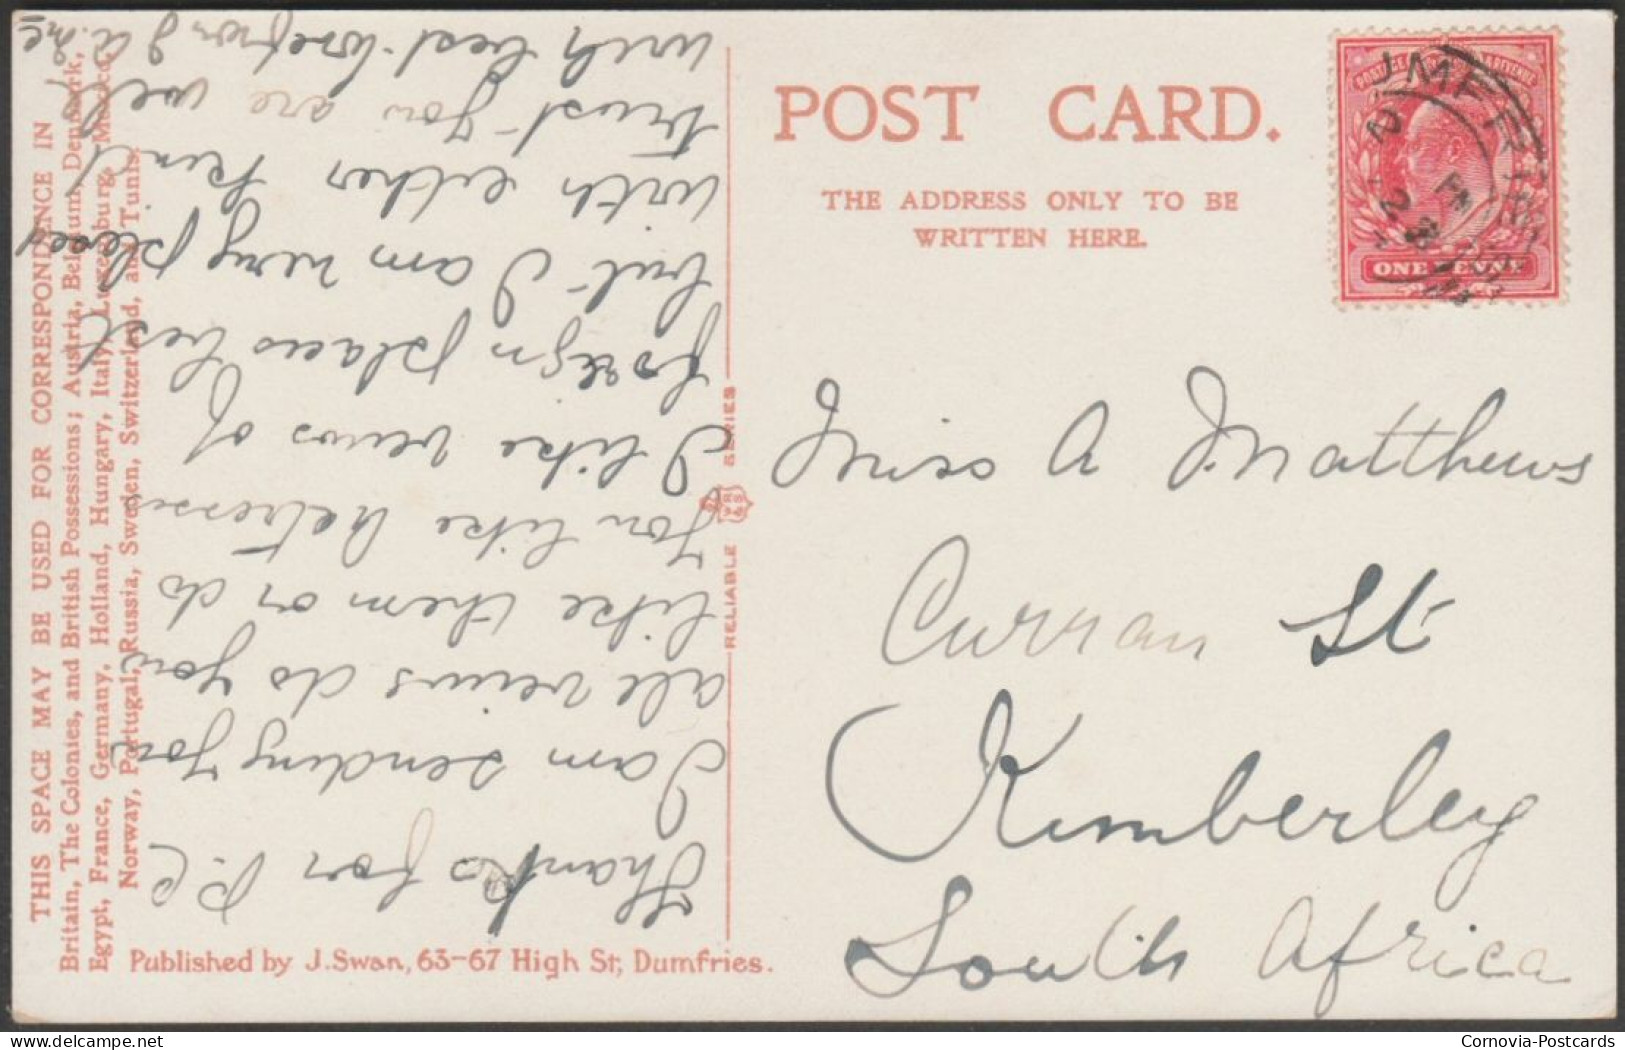 POST CARD.
THE ADDRESS ONLY TO BE
WRITTEN HERE.
POSTAGE & REVENUE
ONE PENNY
Miss A Matthews
Curran St
Kimberley
South Africa
THIS SPACE MAY BE USED FOR CORRESPONDENCE IN
Britain, The Colonies, and British Possessions; Austria, Belgium, Denmark,
Egypt, France, Germany, Holland, Hungary, Italy, Luxemburg, Mexico,
Norway, Portugal, Russia, Sweden, Switzerland, and Tunis.
Thanks for P.C
I am sending you
all views do you
like them or do
you like actresses
I like views of
foreign places best
but I am very pleased
with either kind
trust you are well
with best love from
RELIABLE
SERIES
Published by J. Swan, 63-67 High St., Dumfries.
Cornovia-Postcards